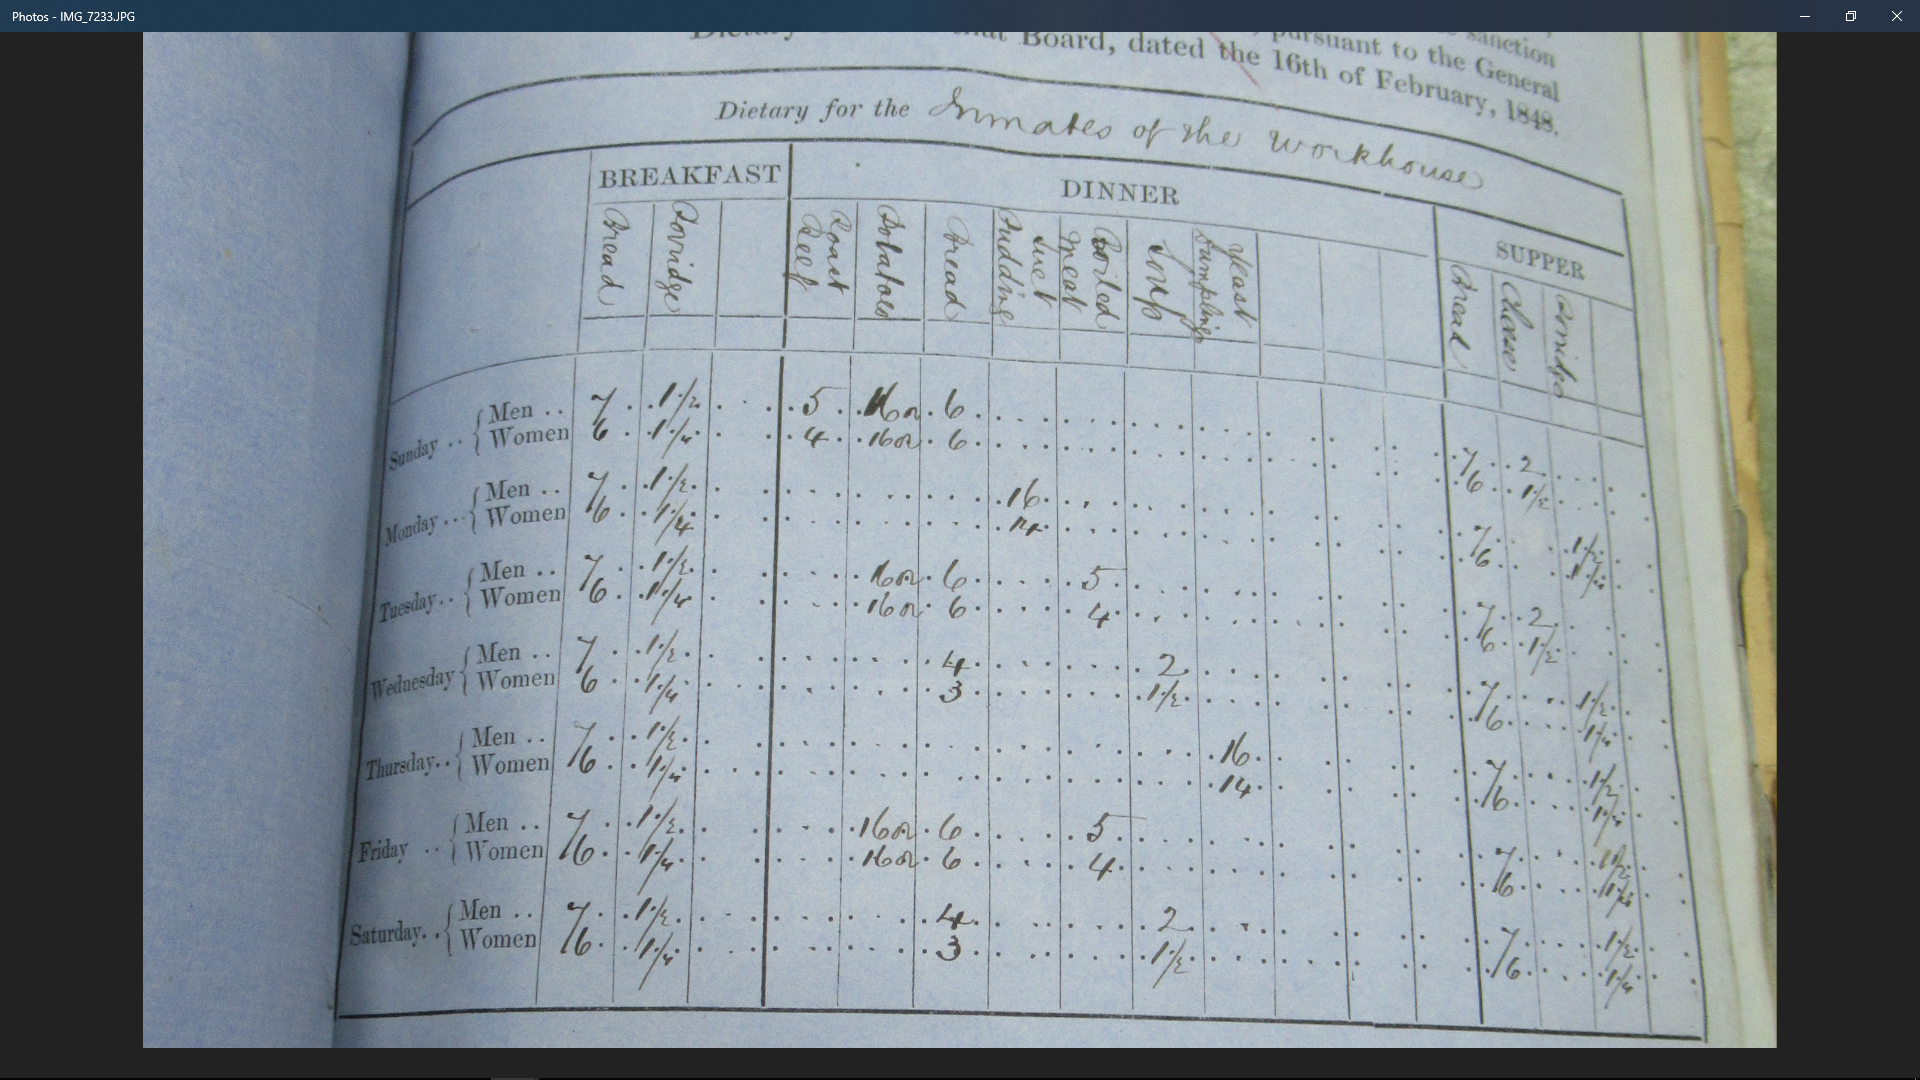 Photos - IMG_7233.JPG
sanction
Dietary Board, dated the 16th of February, 1848.
pursuant to the General
Dietary for the Inmates of the Workhouse
BREAKFAST DINNER SUPPER
Bread Porridge Roast Beef Potatoes Bread Suet Pudding Boiled Meat Soup Yeast Dumpling Bread Cheese Porridge
Sunday .. { Men .. 7 1 1/2 5 16 or 6 7 2
Women 6 1 1/4 4 16 or 6 6 1 1/2
Monday ... { Men .. 7 1 1/2 16 7 1 1/2
Women 6 1 1/4 14 6 1 1/4
Tuesday .. { Men .. 7 1 1/2 16 or 6 5 7 2
Women 6 1 1/4 16 or 6 4 6 1 1/2
Wednesday { Men .. 7 1 1/2 4 2 7 1 1/2
Women 6 1 1/4 3 1 1/2 6 1 1/4
Thursday .. { Men .. 7 1 1/2 16 7 1 1/2
Women 6 1 1/4 14 6 1 1/4
Friday .. { Men .. 7 1 1/2 16 or 6 5 7 1 1/2
Women 6 1 1/4 16 or 6 4 6 1 1/4
Saturday .. { Men .. 7 1 1/2 4 2 7 1 1/2
Women 6 1 1/4 3 1 1/2 6 1 1/4